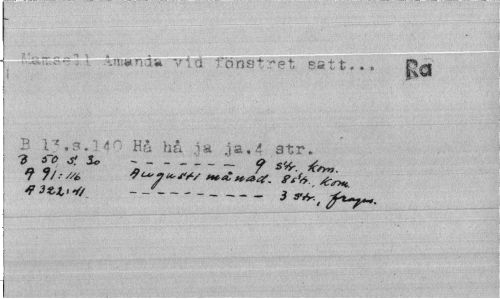 Mamsell Amanda vid fönstret satt... Ra
B 13.s.140 Hå hå ja ja.4 str.
B 50 s. 30 - - - - - - - 9 str, kom.
A 91:116 Augusti månad. 8 str, kom.
A 322:41 - - - - - - - - - - 3 str., fragm.